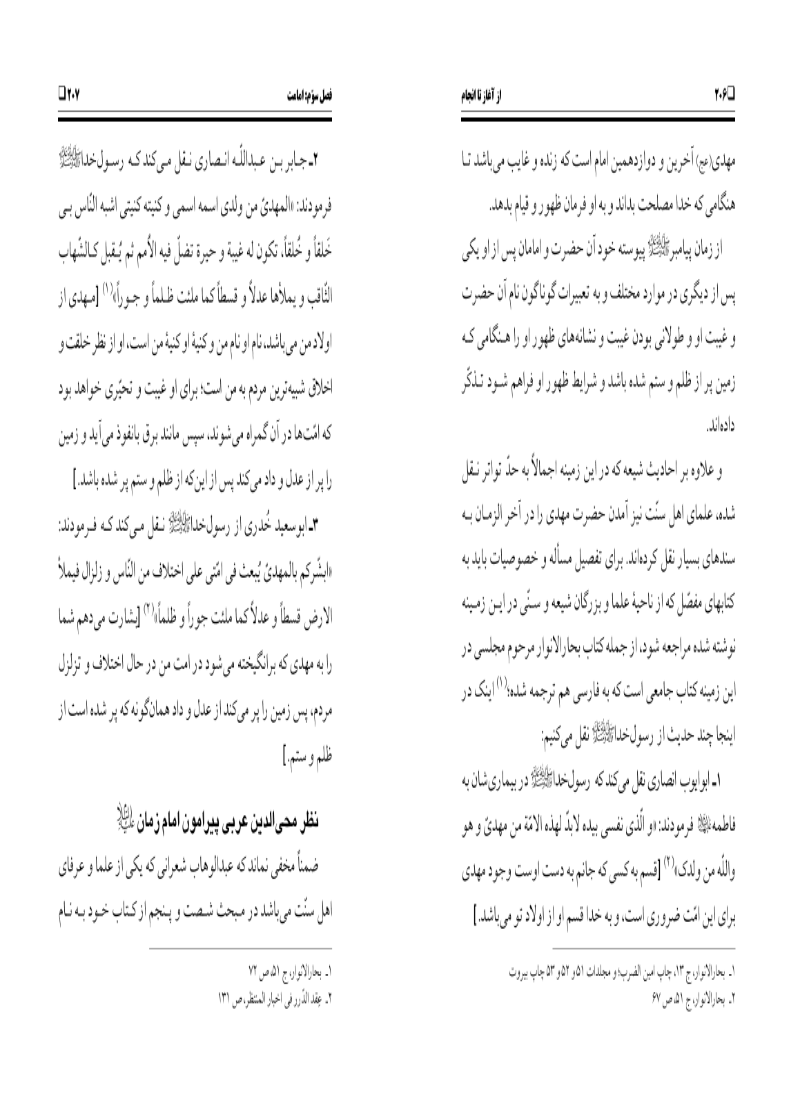 ❑۲۰۶ از آغاز تا انجام
مهدی(عج) آخرین و دوازدهمین امام است که زنده و غایب می‌باشد تا
هنگامی که خدا مصلحت بداند و به او فرمان ظهور و قیام بدهد.
از زمان پیامبرﷺ پیوسته خود آن حضرت و امامان پس از او یکی
پس از دیگری در موارد مختلف و به تعبیرات گوناگون نام آن حضرت
و غیبت او و طولانی بودن غیبت و نشانه‌های ظهور او را هنگامی که
زمین پر از ظلم و ستم شده باشد و شرایط ظهور او فراهم شود تذکّر
داده‌اند.
و علاوه بر احادیث شیعه که در این زمینه اجمالاً به حدّ تواتر نقل
شده، علمای اهل سنّت نیز آمدن حضرت مهدی را در آخر الزمان به
سندهای بسیار نقل کرده‌اند. برای تفصیل مسأله و خصوصیات باید به
کتابهای مفصّل که از ناحیهٔ علما و بزرگان شیعه و سنّی در این زمینه
نوشته شده مراجعه شود، از جمله کتاب بحارالانوار مرحوم مجلسی در
این زمینه کتاب جامعی است که به فارسی هم ترجمه شده؛(۱) اینک در
اینجا چند حدیث از رسول‌خداﷺ نقل می‌کنیم:
۱ـ ابوایوب انصاری نقل می‌کند که رسول‌خداﷺ در بیماری‌شان به
فاطمه فرمودند: «و الّذی نفسی بیده لابدّ لهذه الامّة من مهدیّ و هو
واللّه من ولدک»(۲) [قسم به کسی که جانم به دست اوست وجود مهدی
برای این امّت ضروری است، و به خدا قسم او از اولاد تو می‌باشد.]
۱ـ بحارالانوار، ج ۱۳، چاپ امین الضرب؛ و مجلدات ۵۱ و ۵۲ و ۵۳ چاپ بیروت
۲ـ بحارالانوار، ج ۵۱، ص ۶۷
فصل سوّم: امامت ۲۰۷❑
۲ـ جابر بن عبداللّه انصاری نقل می‌کند که رسول‌خداﷺ
فرمودند: «المهدیّ من ولدی اسمه اسمی و کنیته کنیتی اشبه النّاس بی
خَلقاً و خُلقاً، تکون له غیبة و حیرة تضلّ فیه الأمم ثم یُقبل کالشّهاب
الثّاقب و یملأها عدلاً و قسطاً کما ملئت ظلماً و جوراً»(۱) [مهدی از
اولاد من می‌باشد، نام او نام من و کنیهٔ او کنیهٔ من است، او از نظر خلقت و
اخلاق شبیه‌ترین مردم به من است؛ برای او غیبت و تحیّری خواهد بود
که امّت‌ها در آن گمراه می‌شوند، سپس مانند برق بانفوذ می‌آید و زمین
را پر از عدل و داد می‌کند پس از این‌که از ظلم و ستم پر شده باشد.]
۳ـ ابوسعید خُدری از رسول‌خداﷺ نقل می‌کند که فرمودند:
«ابشّرکم بالمهدیّ یُبعث فی امّتی علی اختلاف من النّاس و زلزال فیملأ
الارض قسطاً و عدلاً کما ملئت جوراً و ظلماً»(۲) [بشارت می‌دهم شما
را به مهدی که برانگیخته می‌شود در امت من در حال اختلاف و تزلزل
مردم، پس زمین را پر می‌کند از عدل و داد همان‌گونه که پر شده است از
ظلم و ستم.]
نظر محی‌الدین عربی پیرامون امام زمان
ضمناً مخفی نماند که عبدالوهاب شعرانی که یکی از علما و عرفای
اهل سنّت می‌باشد در مبحث شصت و پنجم از کتاب خود به نام
۱ـ بحارالانوار، ج ۵۱، ص ۷۲
۲ـ عِقد الدّرر فی اخبار المنتظر، ص ۱۳۱